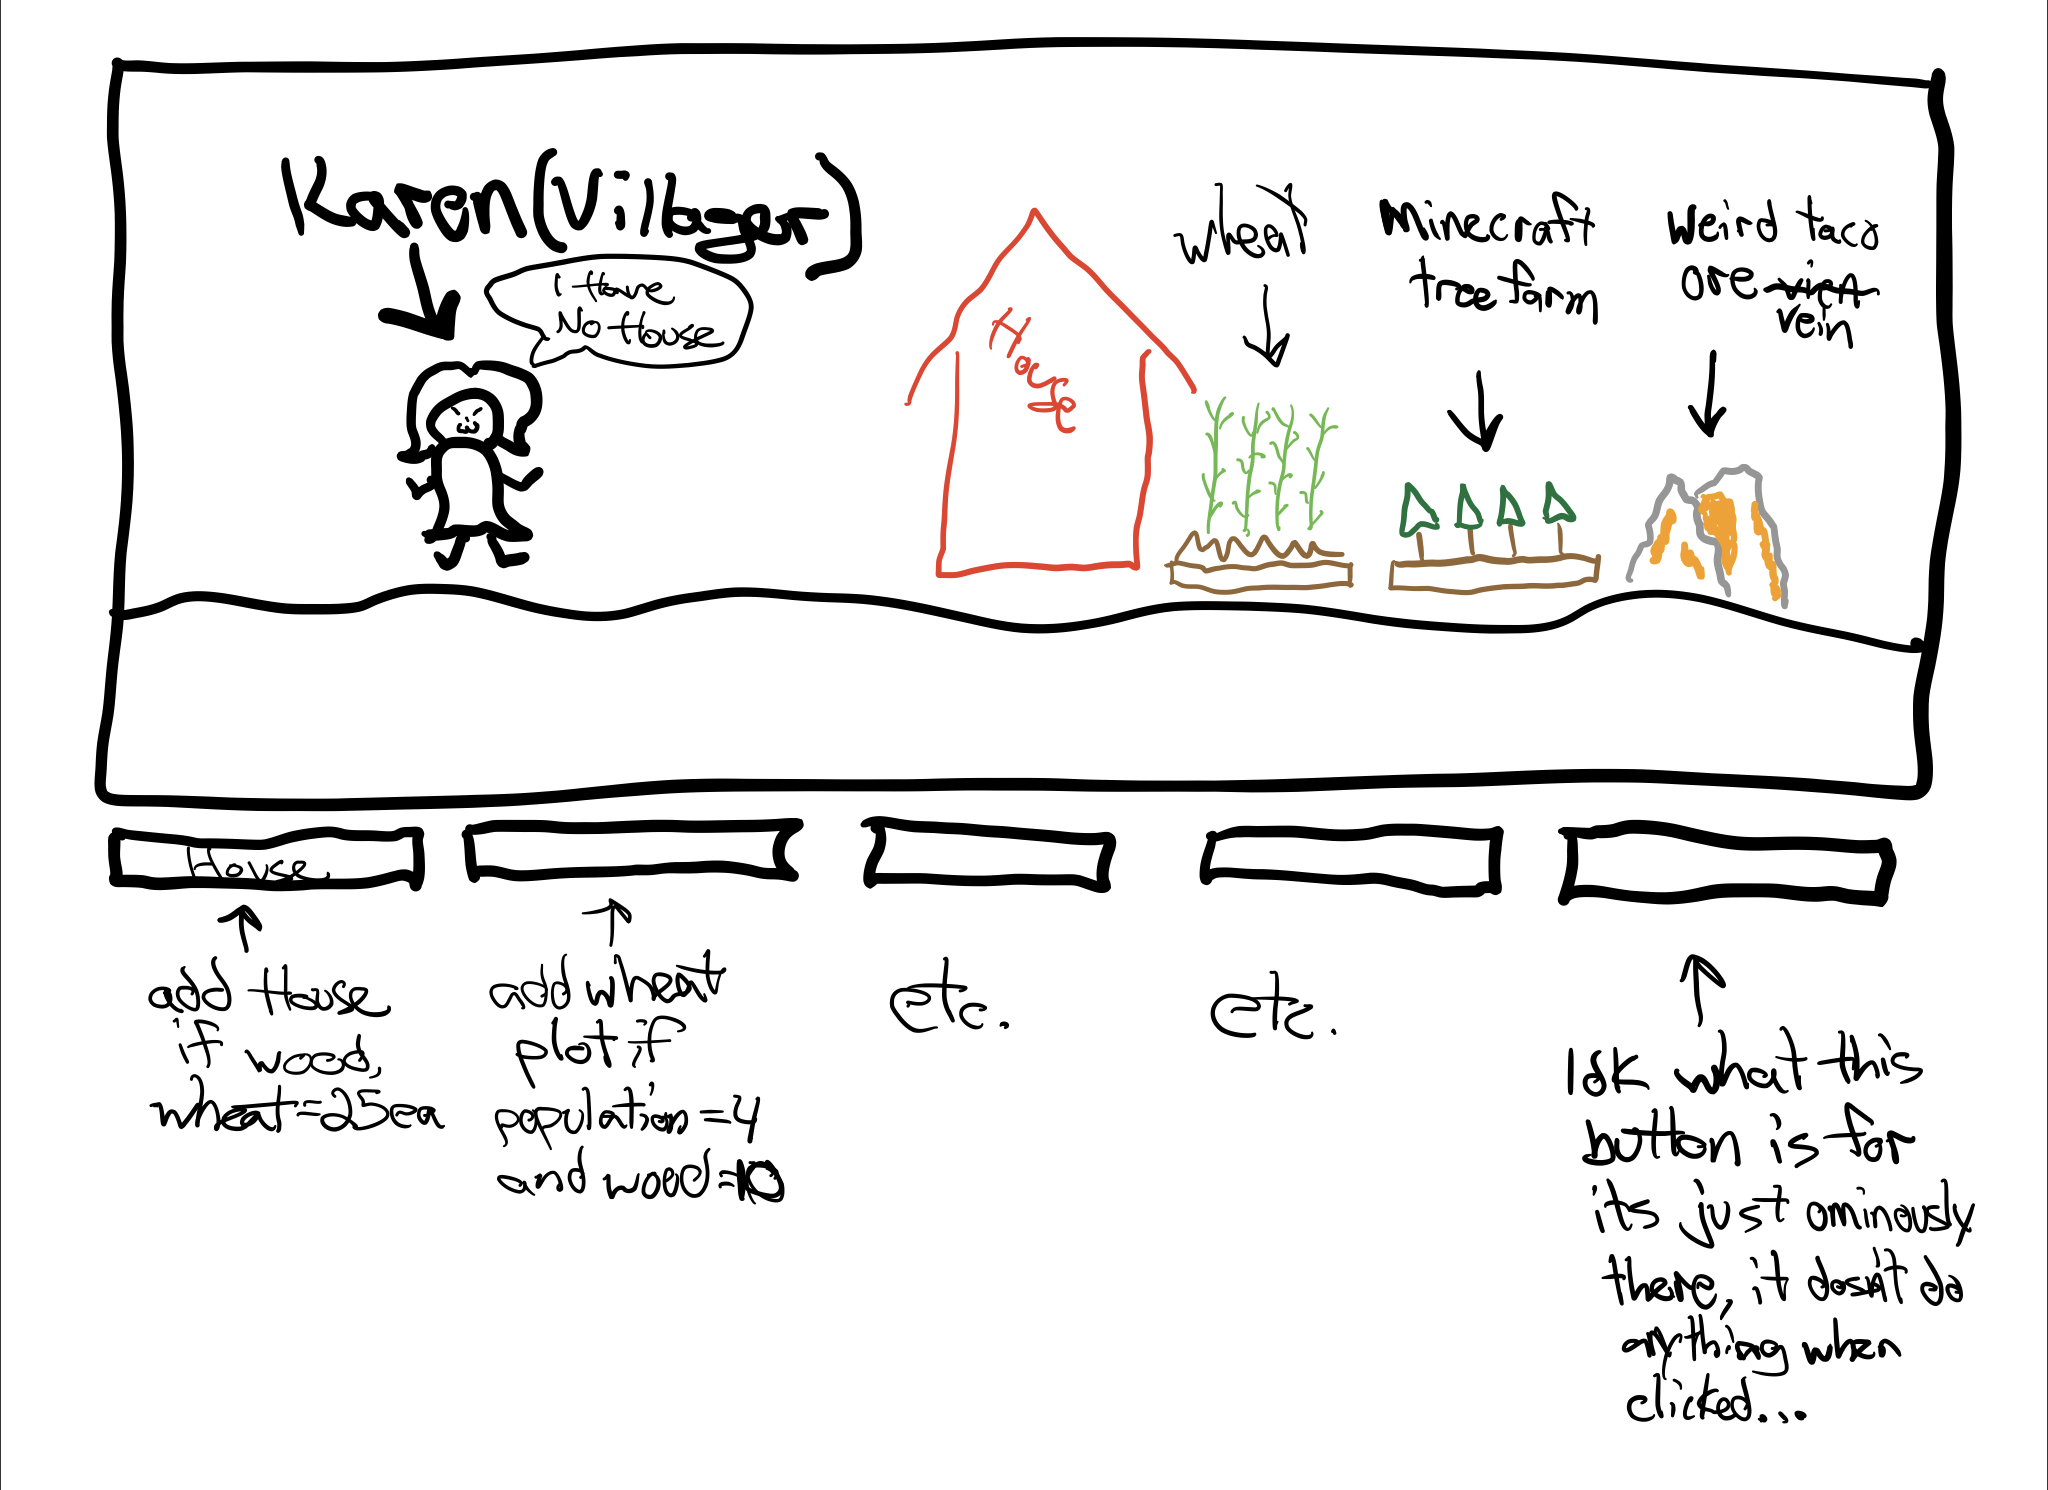 Karen(Villager)
I Have
No House
House
wheat
Minecraft
tree farm
Weird taco
ore vien
vein
House
add House
if wood,
wheat=25ea
add wheat
plot if
population=4
and wood=10
etc.
etc.
Idk what this
button is for
its just ominously
there, it dosn't do
anything when
clicked...